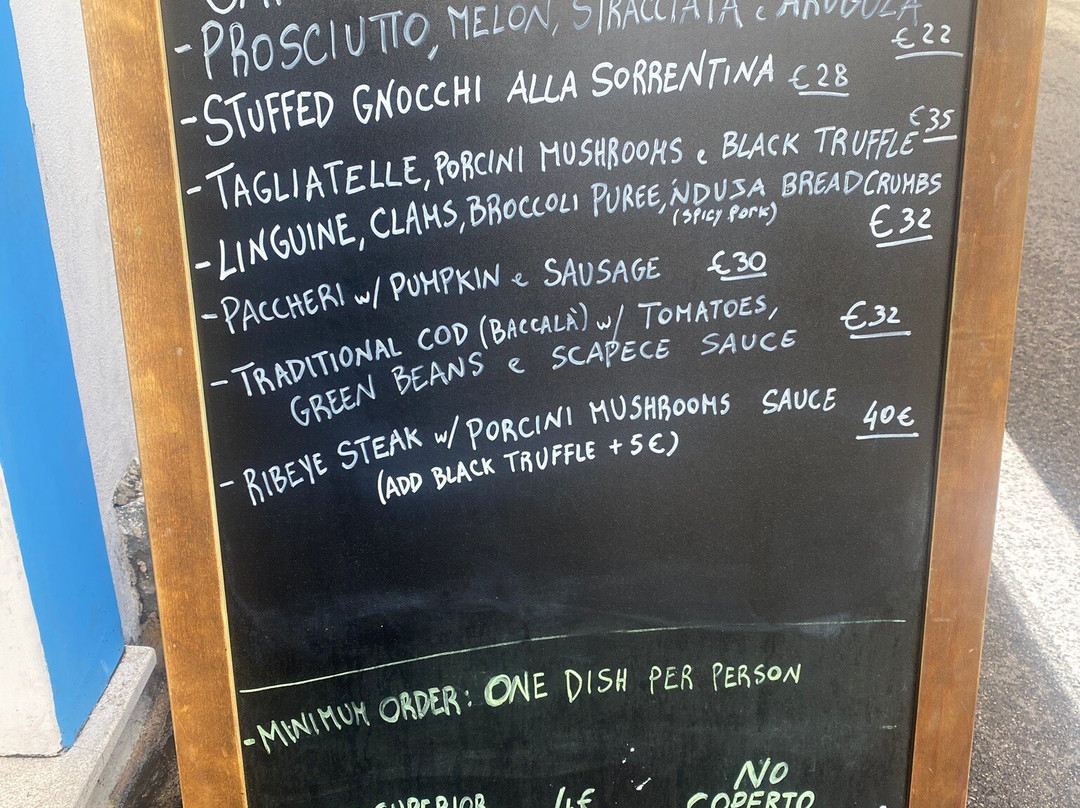 - PROSCIUTTO, MELON, STRACCIATA e ARUGULA
€22
- STUFFED GNOCCHI ALLA SORRENTINA €28
- TAGLIATELLE, PORCINI MUSHROOMS e BLACK TRUFFLE €35
- LINGUINE, CLAMS, BROCCOLI PUREE, 'NDUJA BREADCRUMBS
(SPICY PORK)
€32
- PACCHERI w/ PUMPKIN e SAUSAGE €30
- TRADITIONAL COD (BACCALÀ) w/ TOMATOES, €32
GREEN BEANS e SCAPECE SAUCE
- RIBEYE STEAK w/ PORCINI MUSHROOMS SAUCE 40€
(ADD BLACK TRUFFLE +5€)
- MINIMUM ORDER: ONE DISH PER PERSON
NO
SUPERIOR 4€ COPERTO